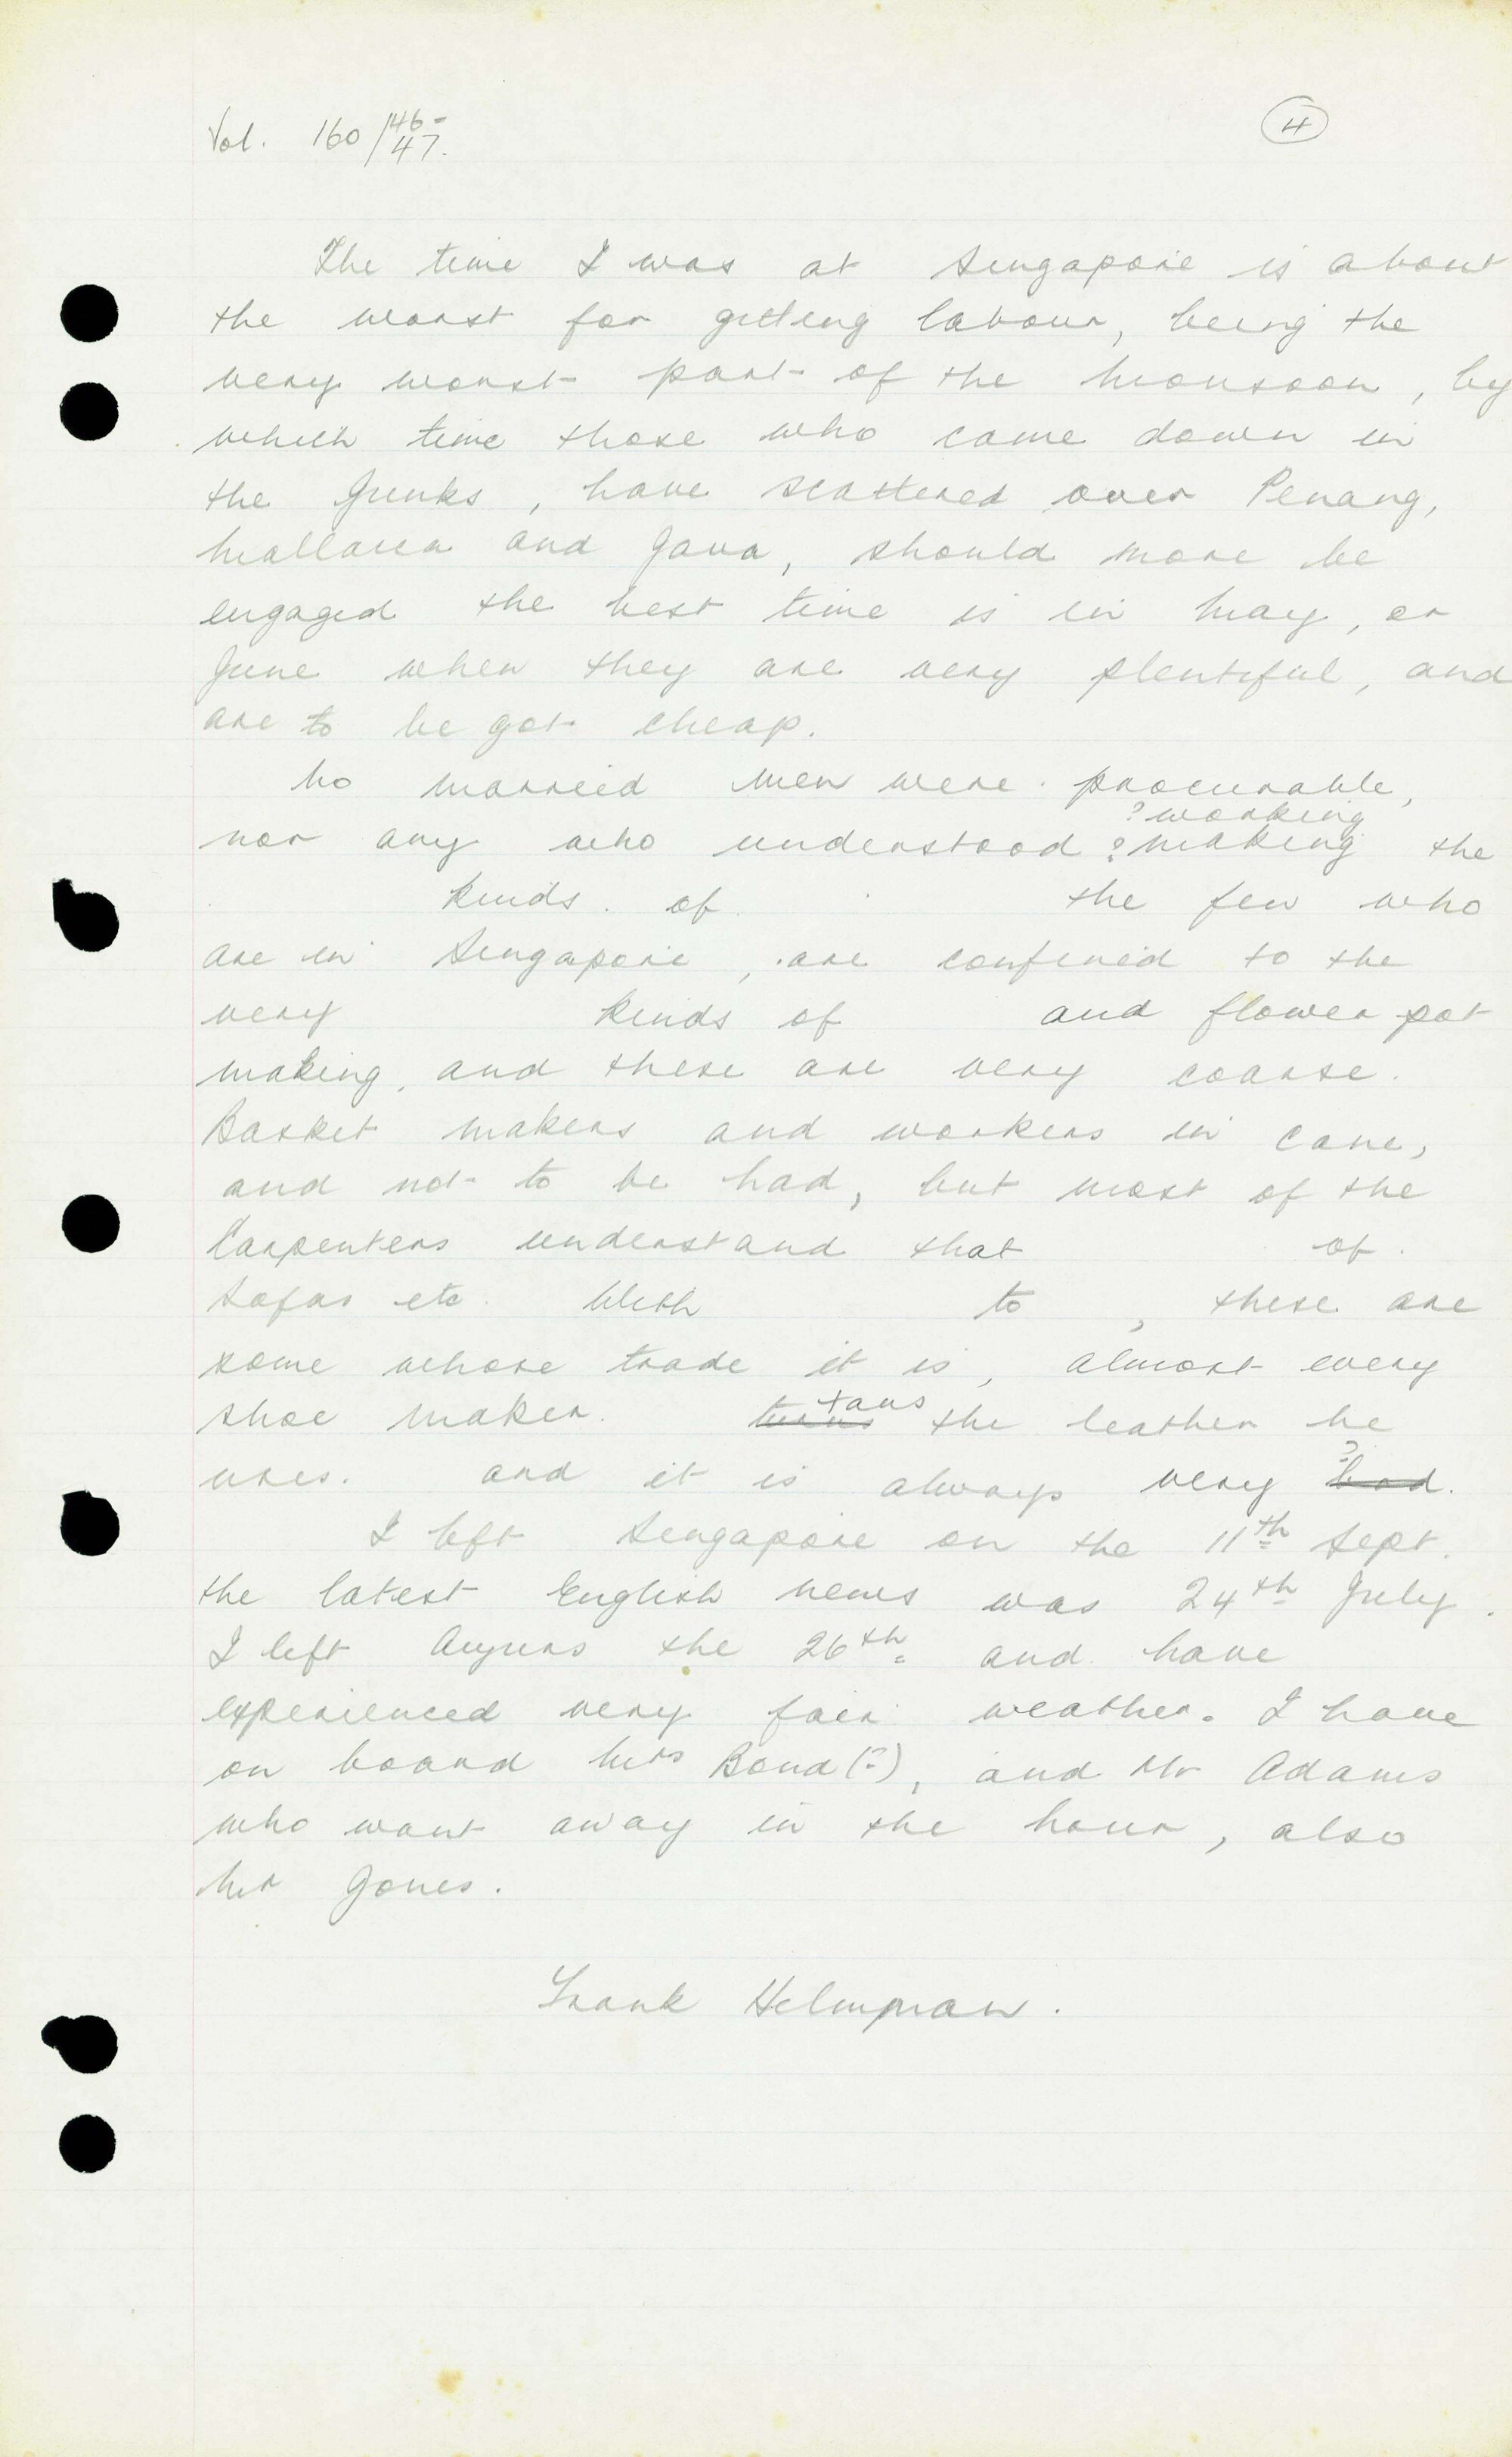 Vol. 160/46-47.
4
The time I was at Singapore is about
the worst for getting labour, being the
very worst part of the Monsoon, by
which time those who came down in
the Junks, have scattered over Penang,
Mallacca and Java, should more be
engaged the best time is in May, or
June when they are very plentiful, and
are to be got cheap.
No married men were procurable,
?working
nor any who understood ?making the
kinds of the few who
are in Singapore, are confined to the
very kinds of and flower pot
making, and these are very coarse.
Basket makers and workers in cane,
and not to be had, but most of the
Carpenters understand that of
Sofas etc. With to , these are
some whose trade it is, almost every
tans
shoe maker. the leather he
uses. and it is always very ?bad.
I left Singapore on the 11th Sept.
the latest English news was 24th July.
I left the 26th and have
experienced very fair weather. I have
on board Mrs Bond(?), and Mr Adams
who want away in the hour, also
Mr Jones.
Frank Helmpman.